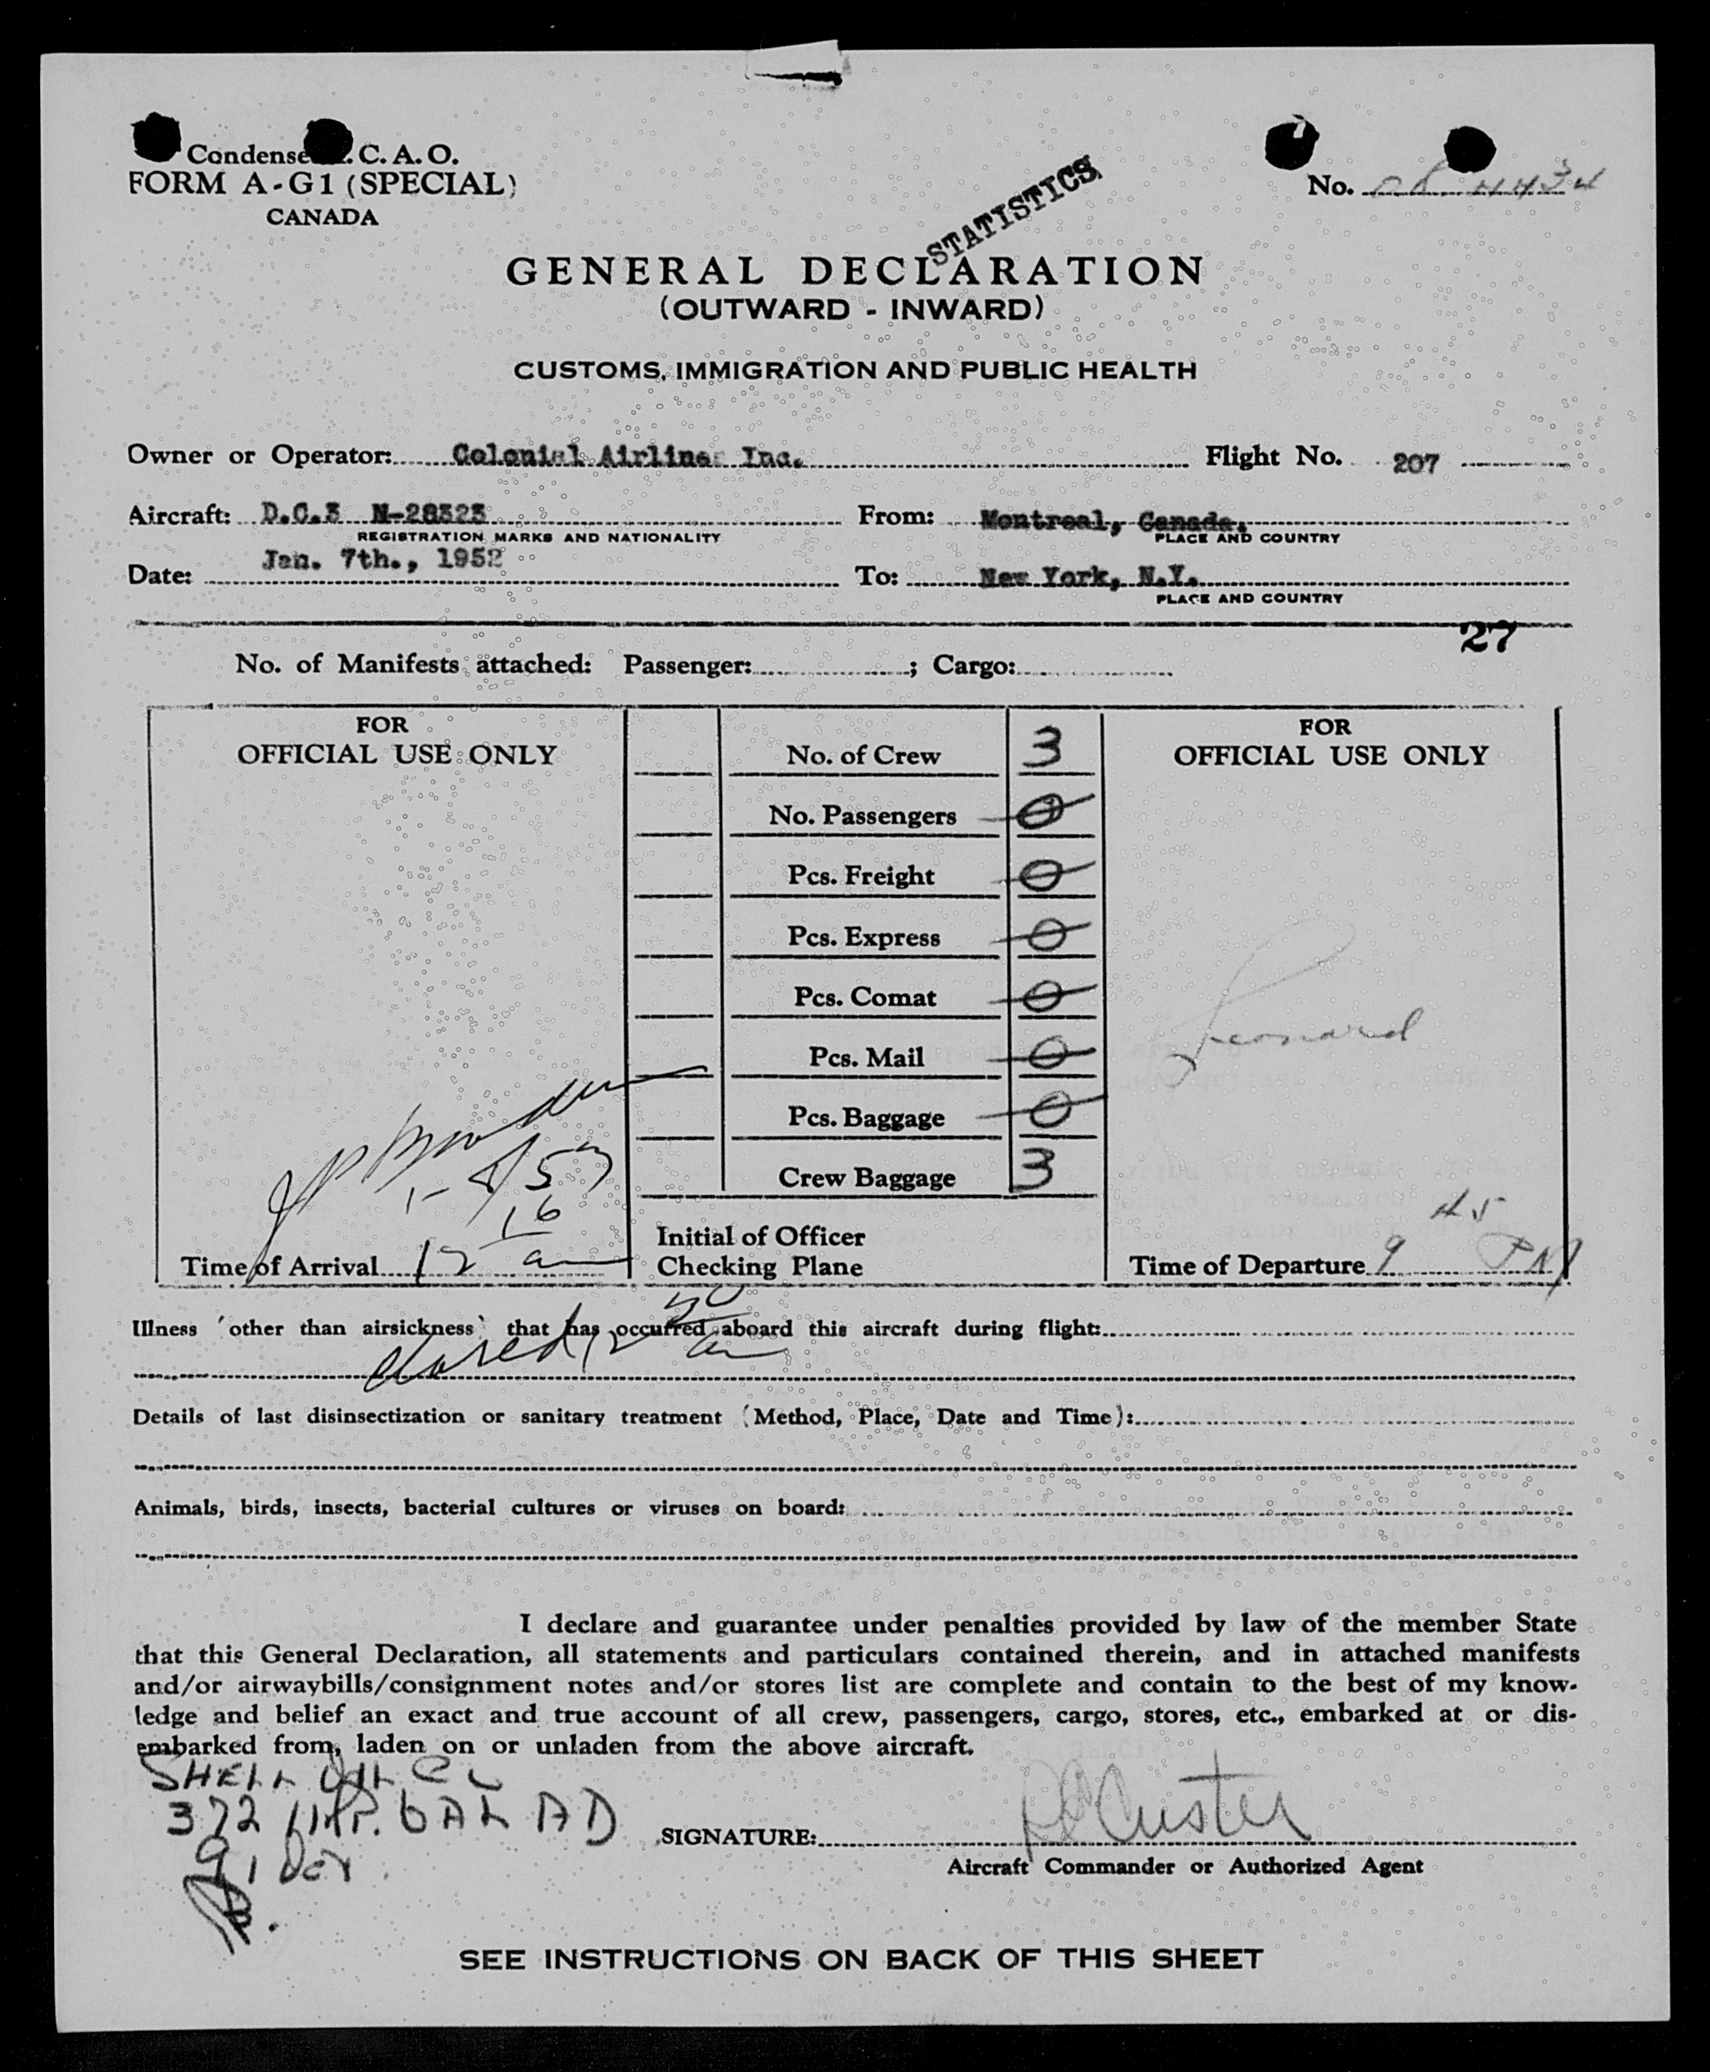 Condense C. A. O.
FORM A-G1 (SPECIAL)
CANADA
No. 4434
STATISTICS
GENERAL DECLARATION
(OUTWARD - INWARD)
CUSTOMS, IMMIGRATION AND PUBLIC HEALTH
Owner or Operator: Colonial Airlines Inc. Flight No. 207
Aircraft: D.C.3 N-28323 From: Montreal, Canada.
REGISTRATION MARKS AND NATIONALITY PLACE AND COUNTRY
Date: Jan. 7th., 1952 To: New York, N.Y.
PLACE AND COUNTRY
27
No. of Manifests attached: Passenger: ; Cargo:
FOR
OFFICIAL USE ONLY
No. of Crew 3
No. Passengers 0
Pcs. Freight 0
Pcs. Express 0
Pcs. Comat 0
Pcs. Mail 0
Pcs. Baggage 0
Crew Baggage 3
Time of Arrival 12 16 a
Initial of Officer
Checking Plane
FOR
OFFICIAL USE ONLY
Leonard
Time of Departure 9 45 PM
Illness (other than airsickness) that has occurred aboard this aircraft during flight:
Details of last disinsectization or sanitary treatment (Method, Place, Date and Time):
Animals, birds, insects, bacterial cultures or viruses on board:
I declare and guarantee under penalties provided by law of the member State
that this General Declaration, all statements and particulars contained therein, and in attached manifests
and/or airwaybills/consignment notes and/or stores list are complete and contain to the best of my know-
ledge and belief an exact and true account of all crew, passengers, cargo, stores, etc., embarked at or dis-
embarked from, laden on or unladen from the above aircraft.
SHELL OIL Co
372 IMP. GAL AD
91 OCT.
SIGNATURE: Custer
Aircraft Commander or Authorized Agent
SEE INSTRUCTIONS ON BACK OF THIS SHEET